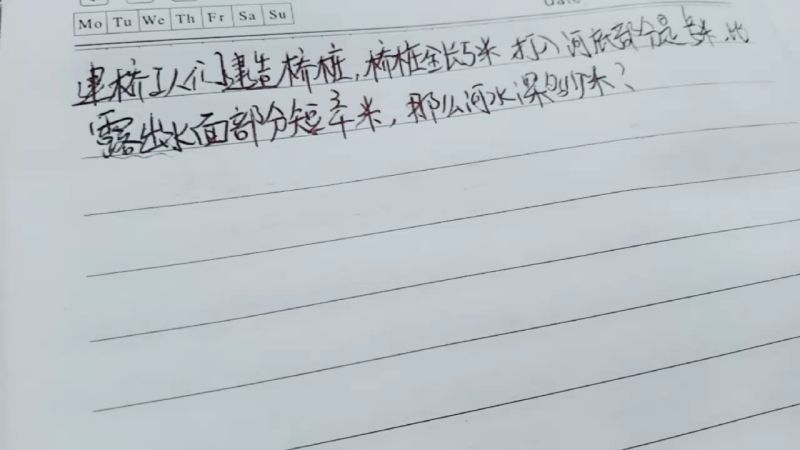 Mo Tu We Th Fr Sa Su
建桥工人们建造桥桩,桥桩全长5米 打入河底部分是 米 比
露出水面部分短 米,那么河水深多少米?